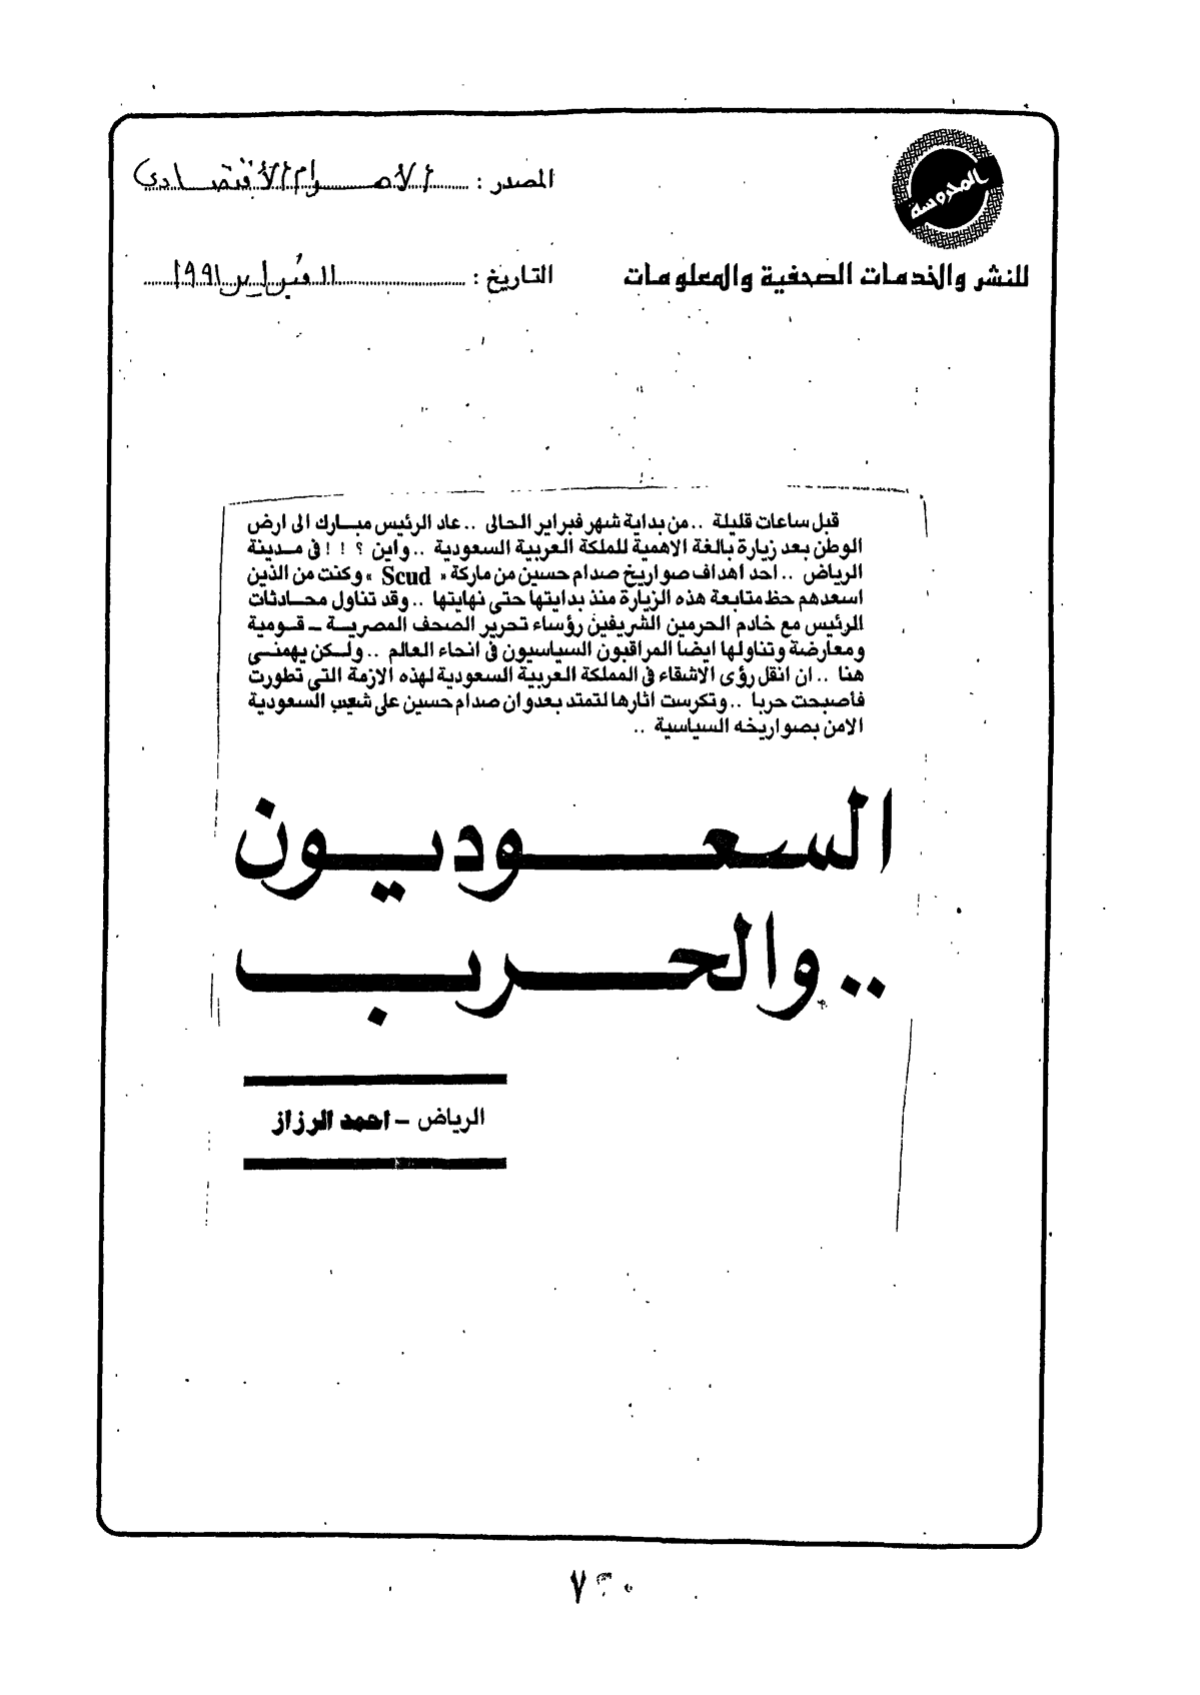 المحروسة
للنشر والخدمات الصحفية والمعلومات
المصدر : الأهرام الأقتصادى
التاريخ : ١١ فبراير ١٩٩١
قبل ساعات قليلة .. من بداية شهر فبراير الحالى .. عاد الرئيس مبارك الى ارض
الوطن بعد زيارة بالغة الاهمية للملكة العربية السعودية .. واين ؟ ! ! فى مدينة
الرياض .. احد اهداف صواريخ صدام حسين من ماركة « Scud » وكنت من الذين
اسعدهم حظ متابعة هذه الزيارة منذ بدايتها حتى نهايتها .. وقد تناول محادثات
الرئيس مع خادم الحرمين الشريفين رؤساء تحرير الصحف المصرية ـ قومية
ومعارضة وتناولها ايضا المراقبون السياسيون فى انحاء العالم .. ولكن يهمنى
هنا .. ان انقل رؤى الاشقاء فى المملكة العربية السعودية لهذه الازمة التى تطورت
فأصبحت حربا .. وتكرست اثارها لتمتد بعدوان صدام حسين على شعب السعودية
الامن بصواريخه السياسية ..
السعوديون
.. والحرب
الرياض ـ احمد الرزاز